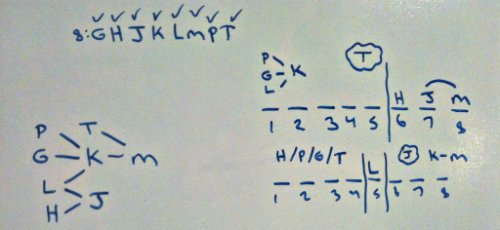 8: G H J K L m P T
P
G K
L
T
H J m
1 2 3 4 5 6 7 8
P T
G K m
L
H J
H/P/G/T L J K-m
1 2 3 4 5 6 7 8